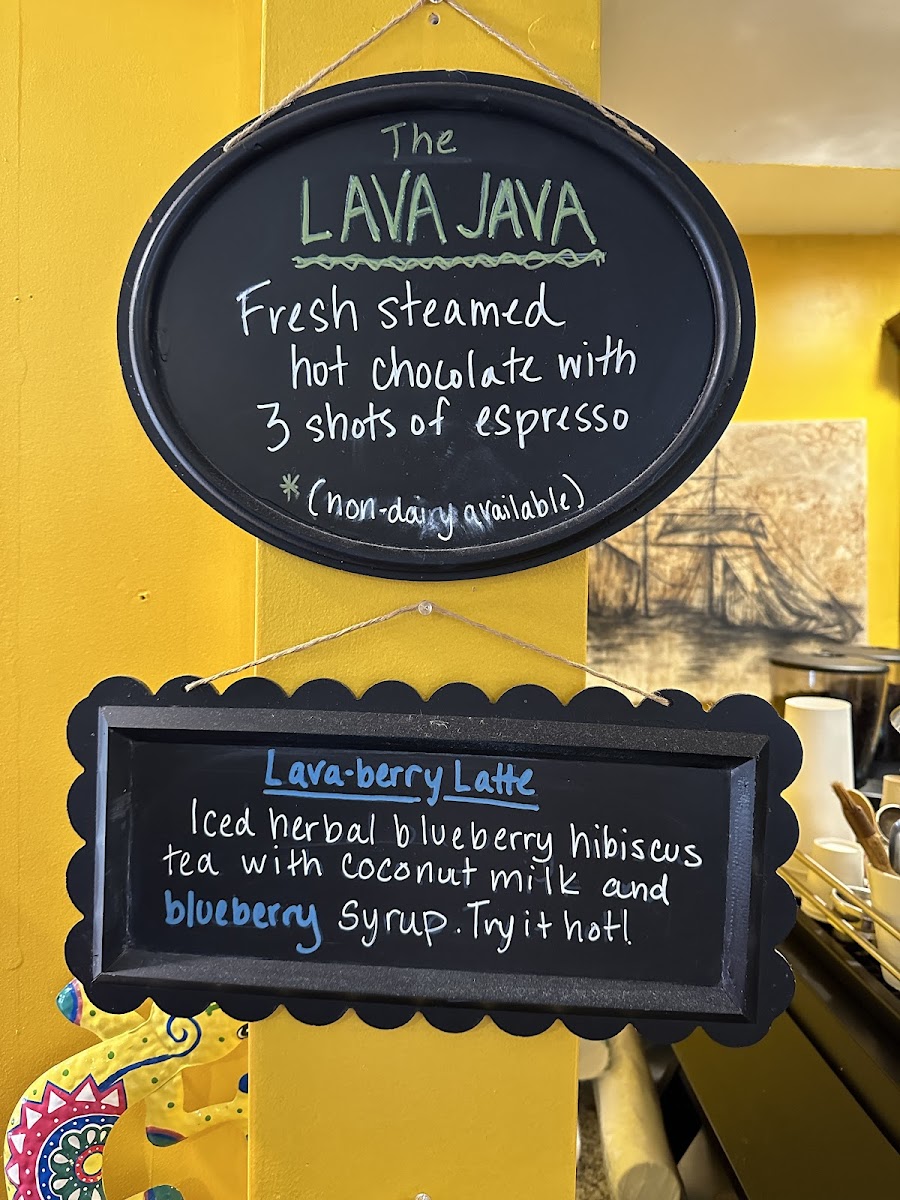 The
LAVA JAVA
Fresh steamed
hot chocolate with
3 shots of espresso
*(non-dairy available)
Lava-berry Latte
Iced herbal blueberry hibiscus
tea with coconut milk and
blueberry syrup. Try it hot!